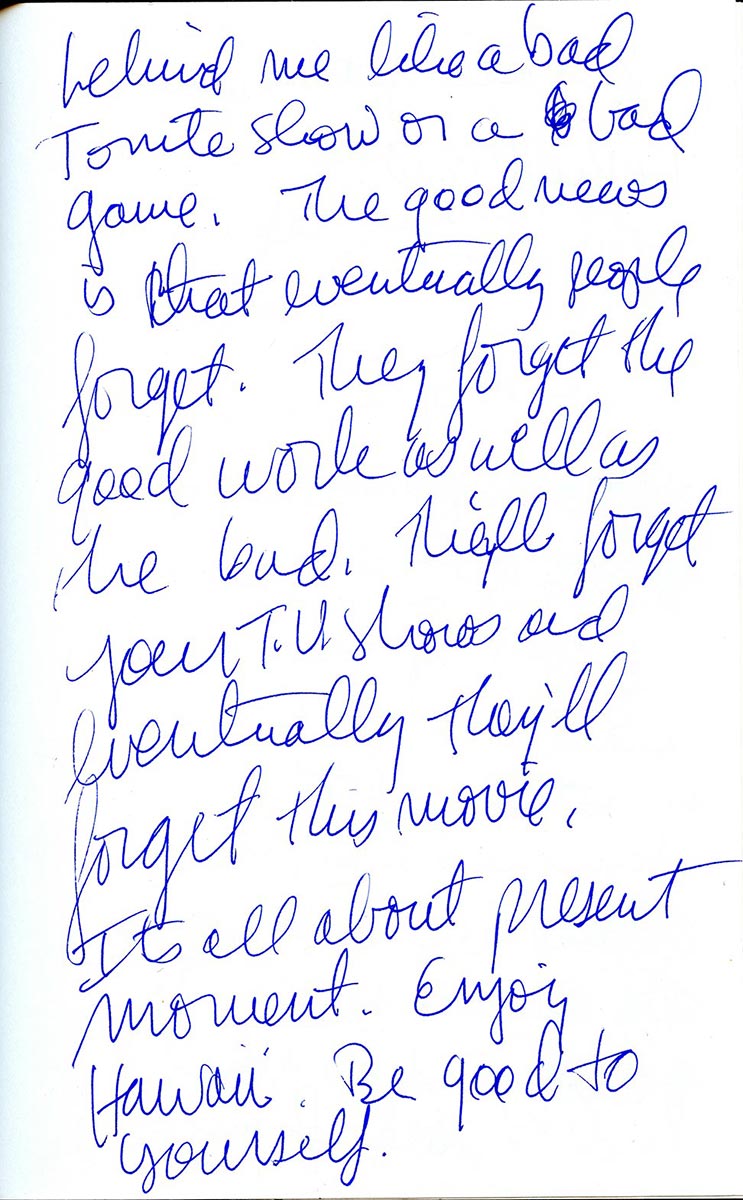 behind me like a bad
Tonite show or a bad
game. The good news
is that eventually people
forget. They forget the
good work as well as
the bad. They'll forget
your T.V. shows and
eventually they'll
forget this movie.
Its all about present
moment. Enjoy
Hawaii. Be good to
yourself.